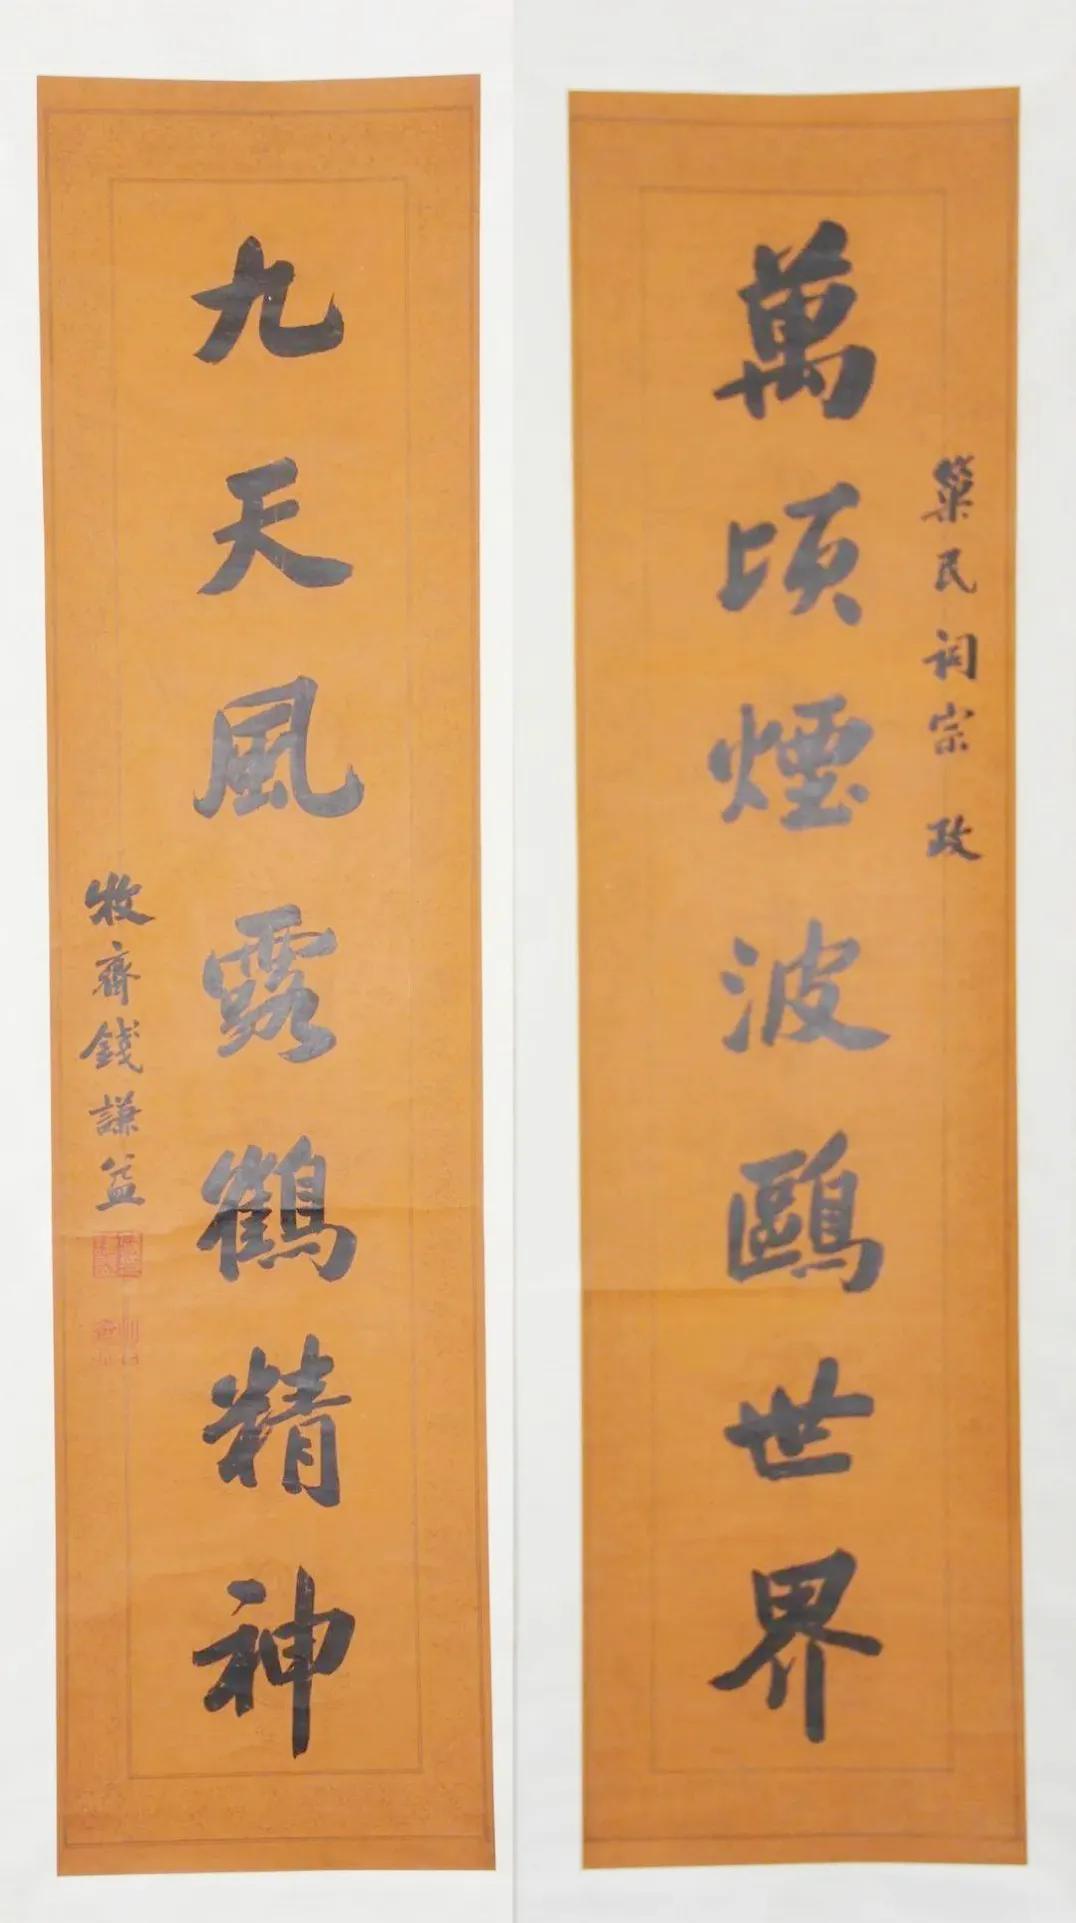 萬頃煙波鷗世界
篥民詞宗 政
九天風露鶴精神
牧齋錢謙益